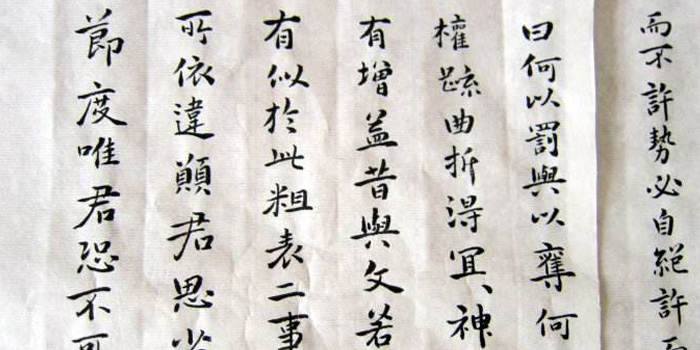 而不許勢必自絕許而
曰何以罰與以奪何
權疏曲折得宜神
有增益昔與文若
有似於此粗表二事
所依違願君思省
節度唯君恐不可